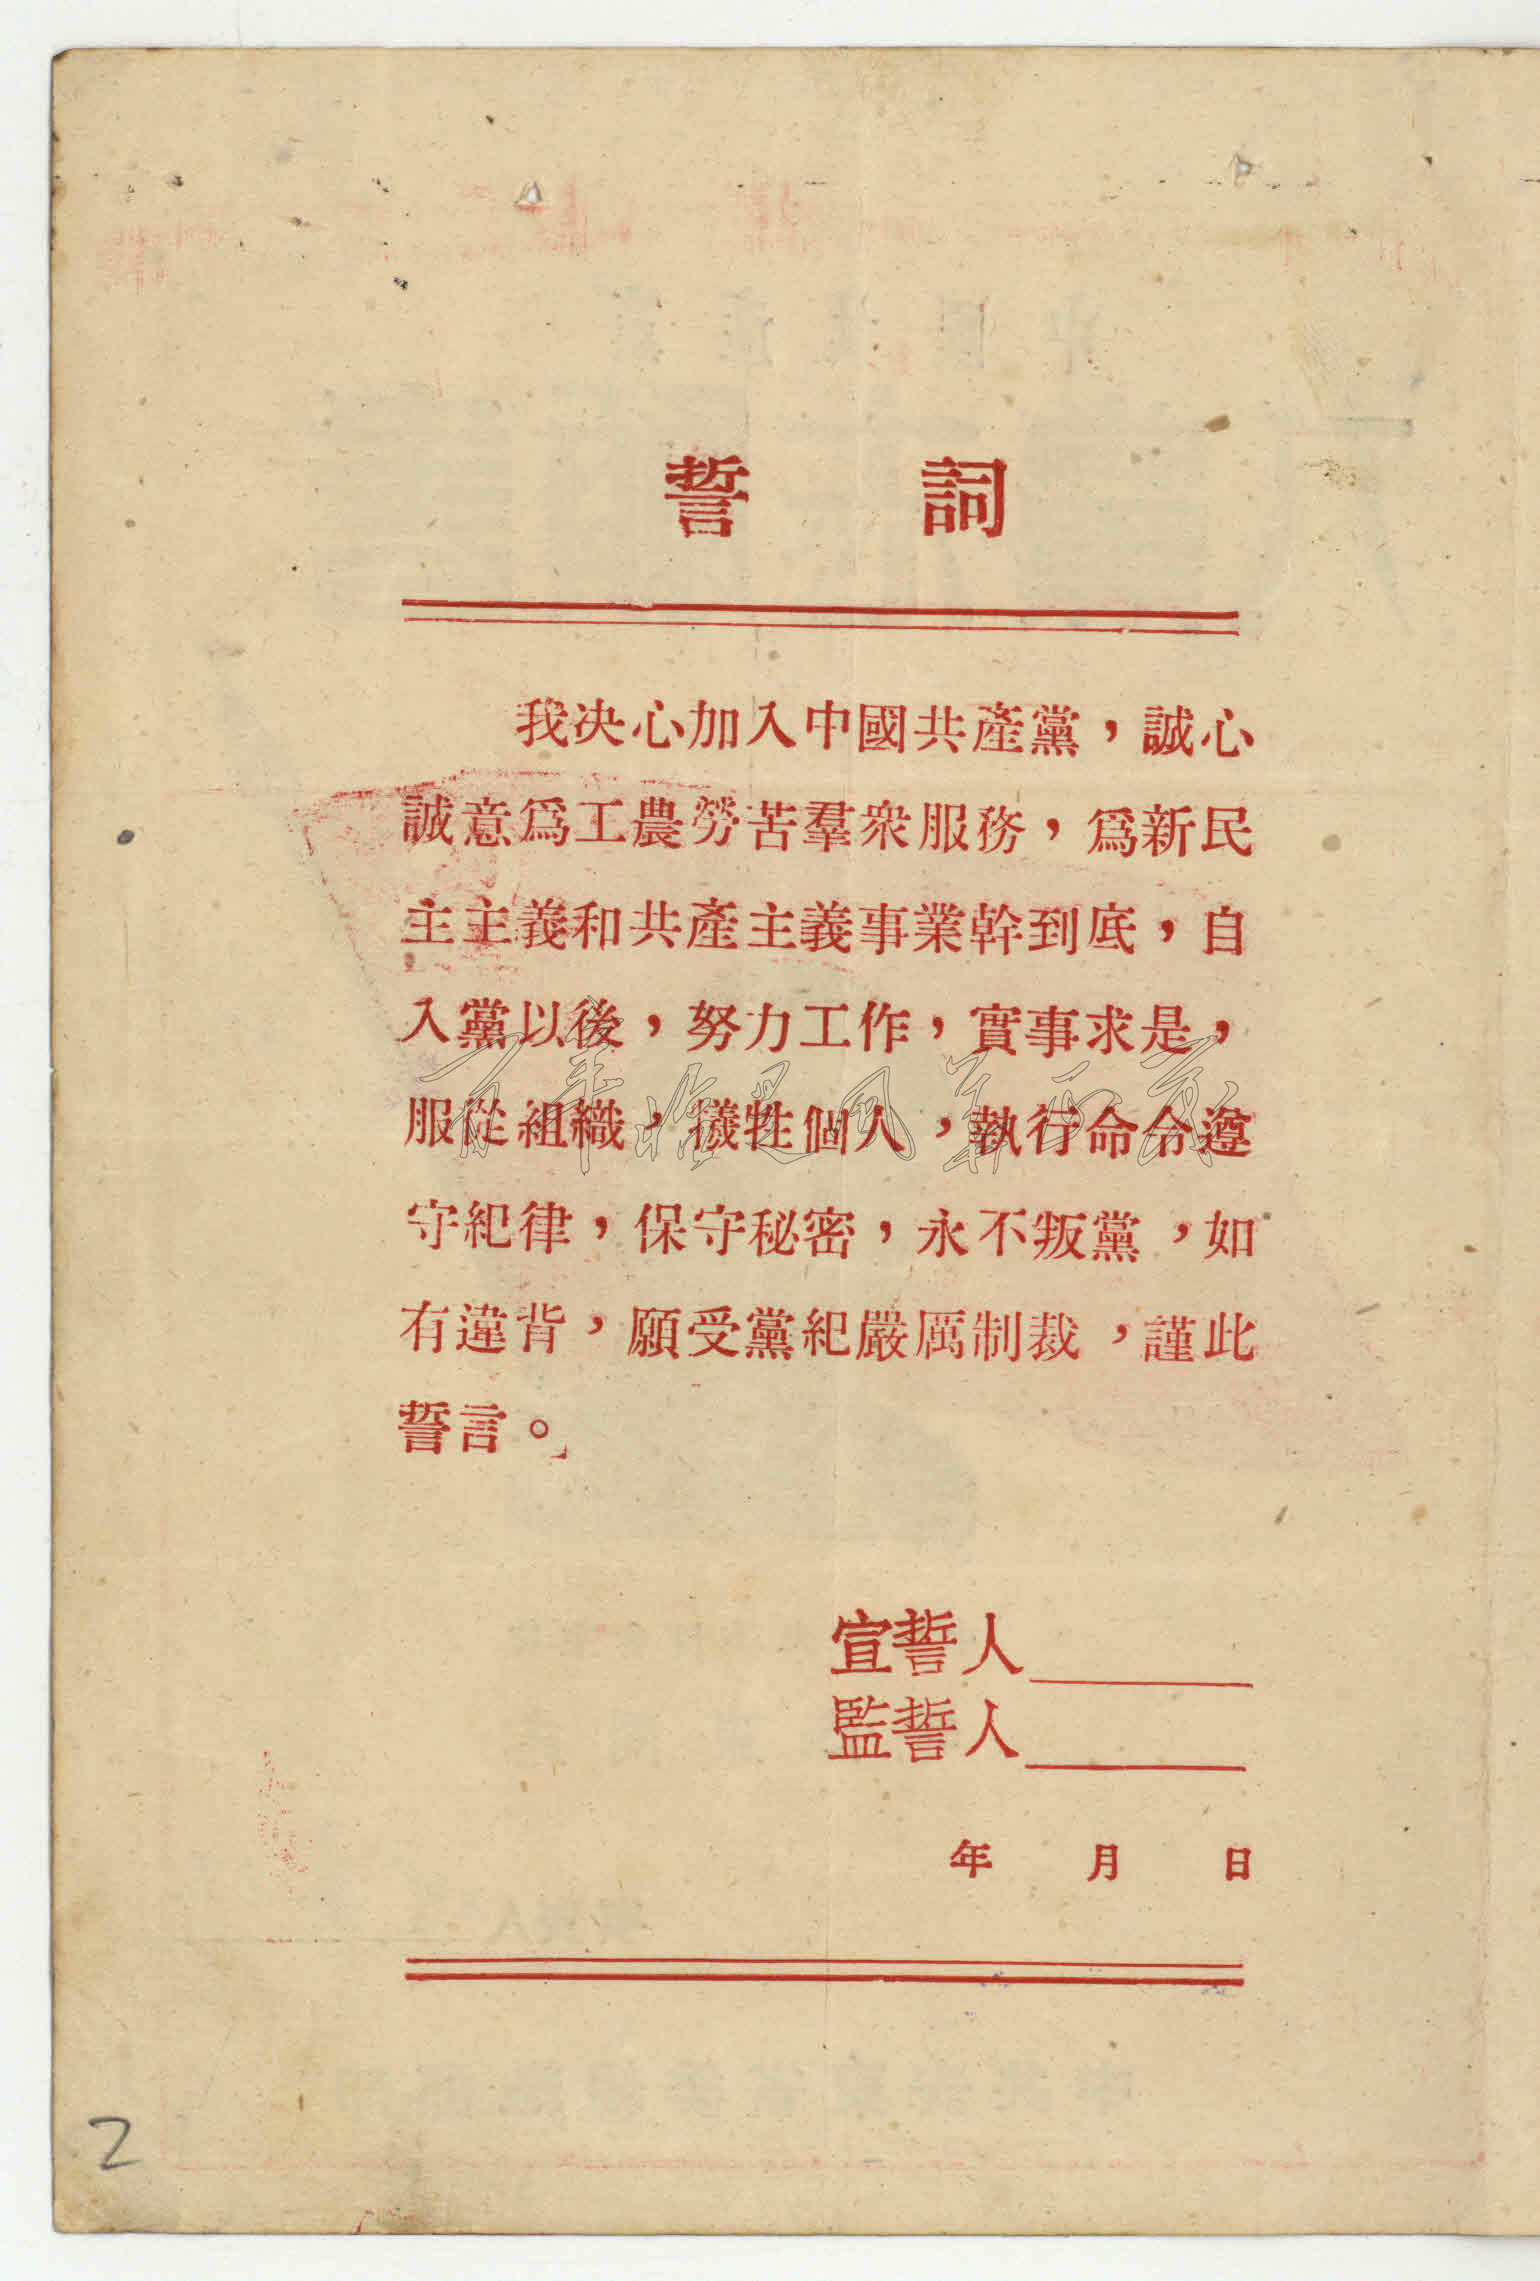 誓 詞
我决心加入中國共產黨，誠心
誠意爲工農勞苦羣衆服務，爲新民
主主義和共產主義事業幹到底，自
入黨以後，努力工作，實事求是，
服從組織，犠牲個人，執行命令遵
守紀律，保守秘密，永不叛黨，如
有違背，願受黨紀嚴厲制裁，謹此
誓言。」
宣誓人
監誓人
年 月 日
2